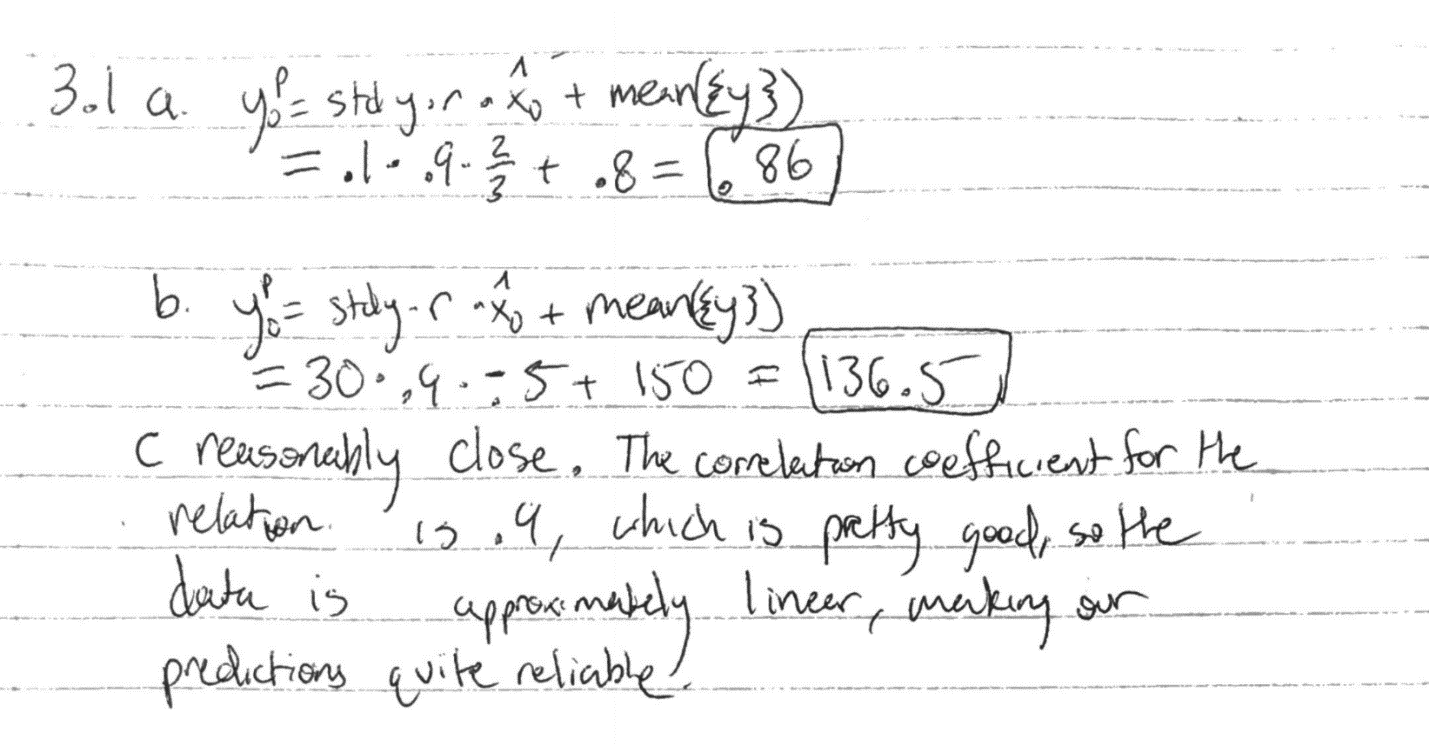 3.1 a. y₀ᵖ = std y · r · x̂₀ + mean({y})
= .1 · .9 · 2/3 + .8 = .86
b. y₀ᵖ = stdy · r · x̂₀ + mean({y})
= 30 · .9 · -.5 + 150 = 136.5
C reasonably close. The correlation coefficient for the
relation is .9, which is pretty good, so the
data is approximately linear, making our
predictions quite reliable.